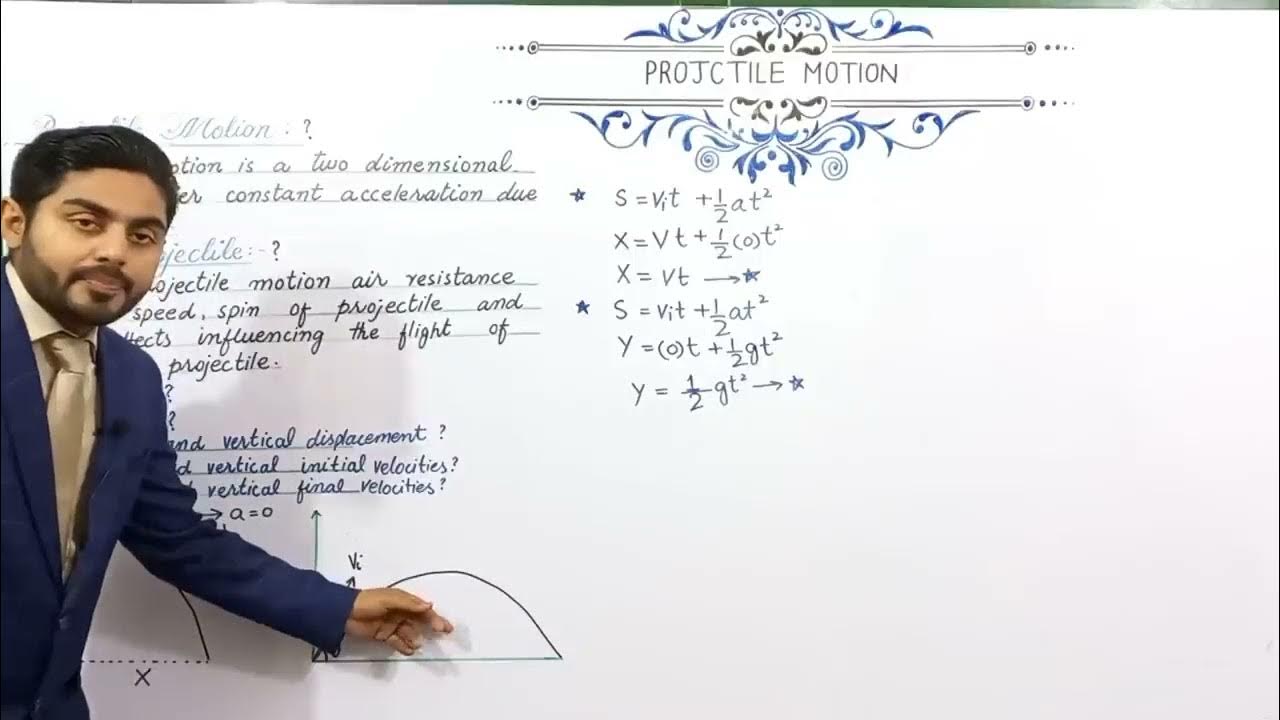 PROJCTILE MOTION
Motion : ?
otion is a two dimensional
er constant acceleration due
jectile :- ?
ojectile motion air resistance
speed, spin of projectile and
fects influencing the flight of
projectile.
?
?
and vertical displacement ?
d vertical initial velocities?
vertical final velocities?
→ a=0
Vi
X
★ S = Vit + 1/2 at²
X = Vt + 1/2 (0)t²
X = Vt → ★
★ S = Vit + 1/2 at²
Y = (0)t + 1/2 gt²
Y = 1/2 gt² → ★